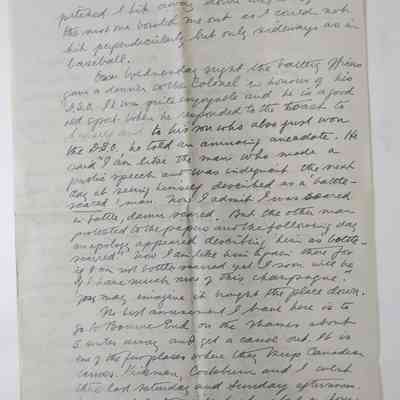 pitched I hit away down
the next one bowled me out as I could not
hit perpendicularly but only sideways as in
baseball.
On Wednesday night the battery officers
gave a dinner to the Colonel in honour of his
D.S.O. It was quite enjoyable and he is a good
old sport. When he responded to the toast to
himself and to his son who also just won
the D.S.O. he told an amusing anecdote. He
said "I am like the man who made a
public speech and was indignant the next
day at seeing himself described as a 'battle-
scared' man. Now I admit I was scared
in battle, damn scared. But the other man
protested to the papers and the following day
an apology appeared describing him as bottle-
scarred". Now I am like him again there for
if I am not bottle scarred yet I soon will be
if I have much more of this champagne".
You may imagine it brought the place down.
The best amusement I have here is to
go to Bourne End on the Thames about
5 miles away and get a canoe out. It is
one of the few places where they keep Canadian
canoes. Hickman, Cockburn and I went
there last Saturday and Sunday afternoon.